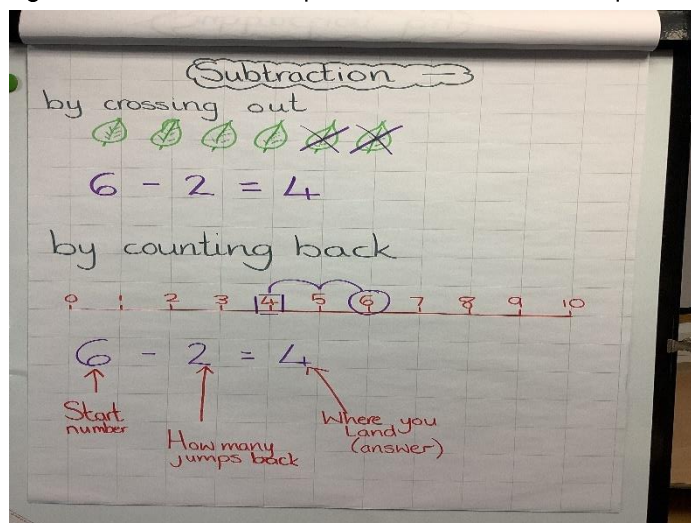 Subtraction
by crossing out
6 - 2 = 4
by counting back
0 1 2 3 4 5 6 7 8 9 10
6 - 2 = 4
Start
number
How many
jumps back
Where you
Land
(answer)